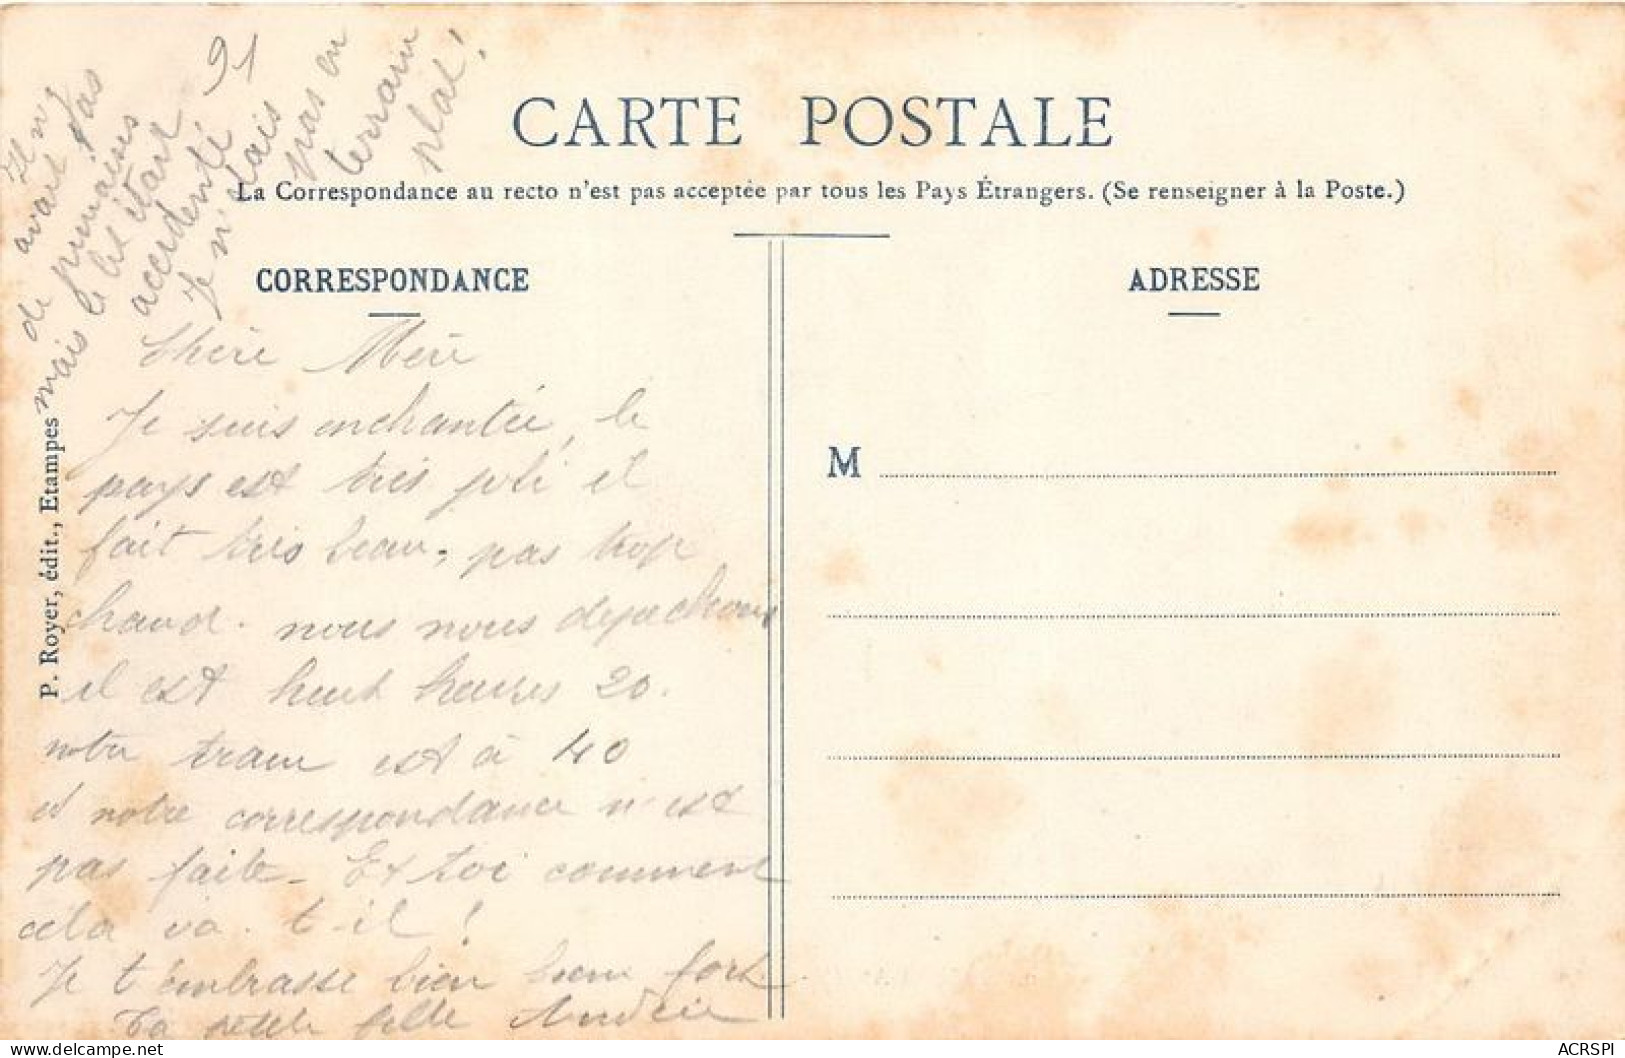 CARTE POSTALE
La Correspondance au recto n'est pas acceptée par tous les Pays Étrangers. (Se renseigner à la Poste.)
CORRESPONDANCE
ADRESSE
M
P. Royer, édit., Etampes
91
Il n'y
avait pas
de punaises
mais le lit était
accidenté
Je n'étais
pas en
terrain
plat!
Chère Mère
Je suis enchantée, le
pays est très joli il
fait très beau, pas trop
chaud. nous nous dépêchons
il est huit heures 20.
notre train est à 40
et notre correspondance n'est
pas faite. Et toi comment
cela va-t-il!
Je t'embrasse bien bien fort
Ta petite fille Andrée
ACRSPI